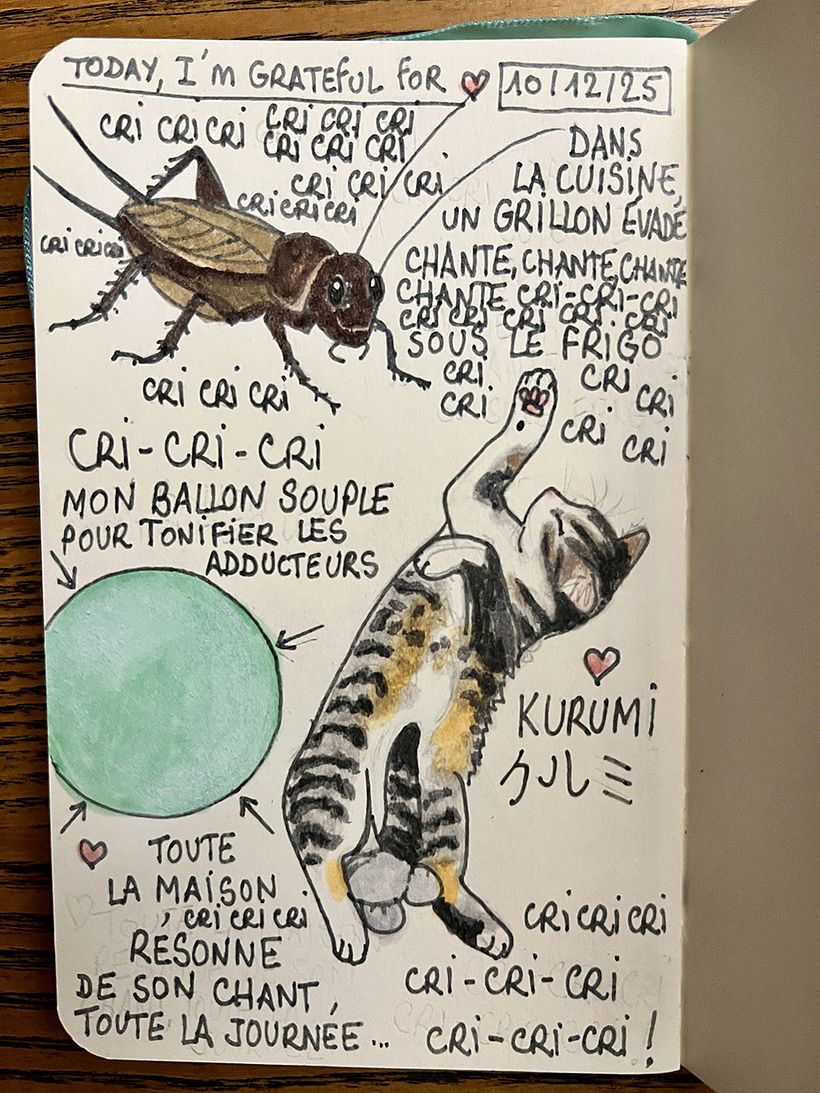 TODAY, I'm GRATEFUL FOR
10/12/25
CRI CRI CRI CRI CRI CRI
CRI CRI CRI
CRI CRI CRI
CRI CRI CRI
CRI CRI CRI
DANS
LA CUISINE,
UN GRILLON ÉVADÉ
CHANTE, CHANTE, CHANTE
CHANTE CRI-CRI-CRI
CRI CRI CRI CRI CRI
SOUS LE FRIGO
CRI CRI
CRI CRI
CRI
CRI
CRI CRI CRI
CRI-CRI-CRI
MON BALLON SOUPLE
POUR TONIFIER LES
ADDUCTEURS
KURUMI
クルミ
TOUTE
LA MAISON
CRI CRI CRI
RÉSONNE
DE SON CHANT,
TOUTE LA JOURNÉE...
CRI CRI CRI
CRI-CRI-CRI
CRI-CRI-CRI !